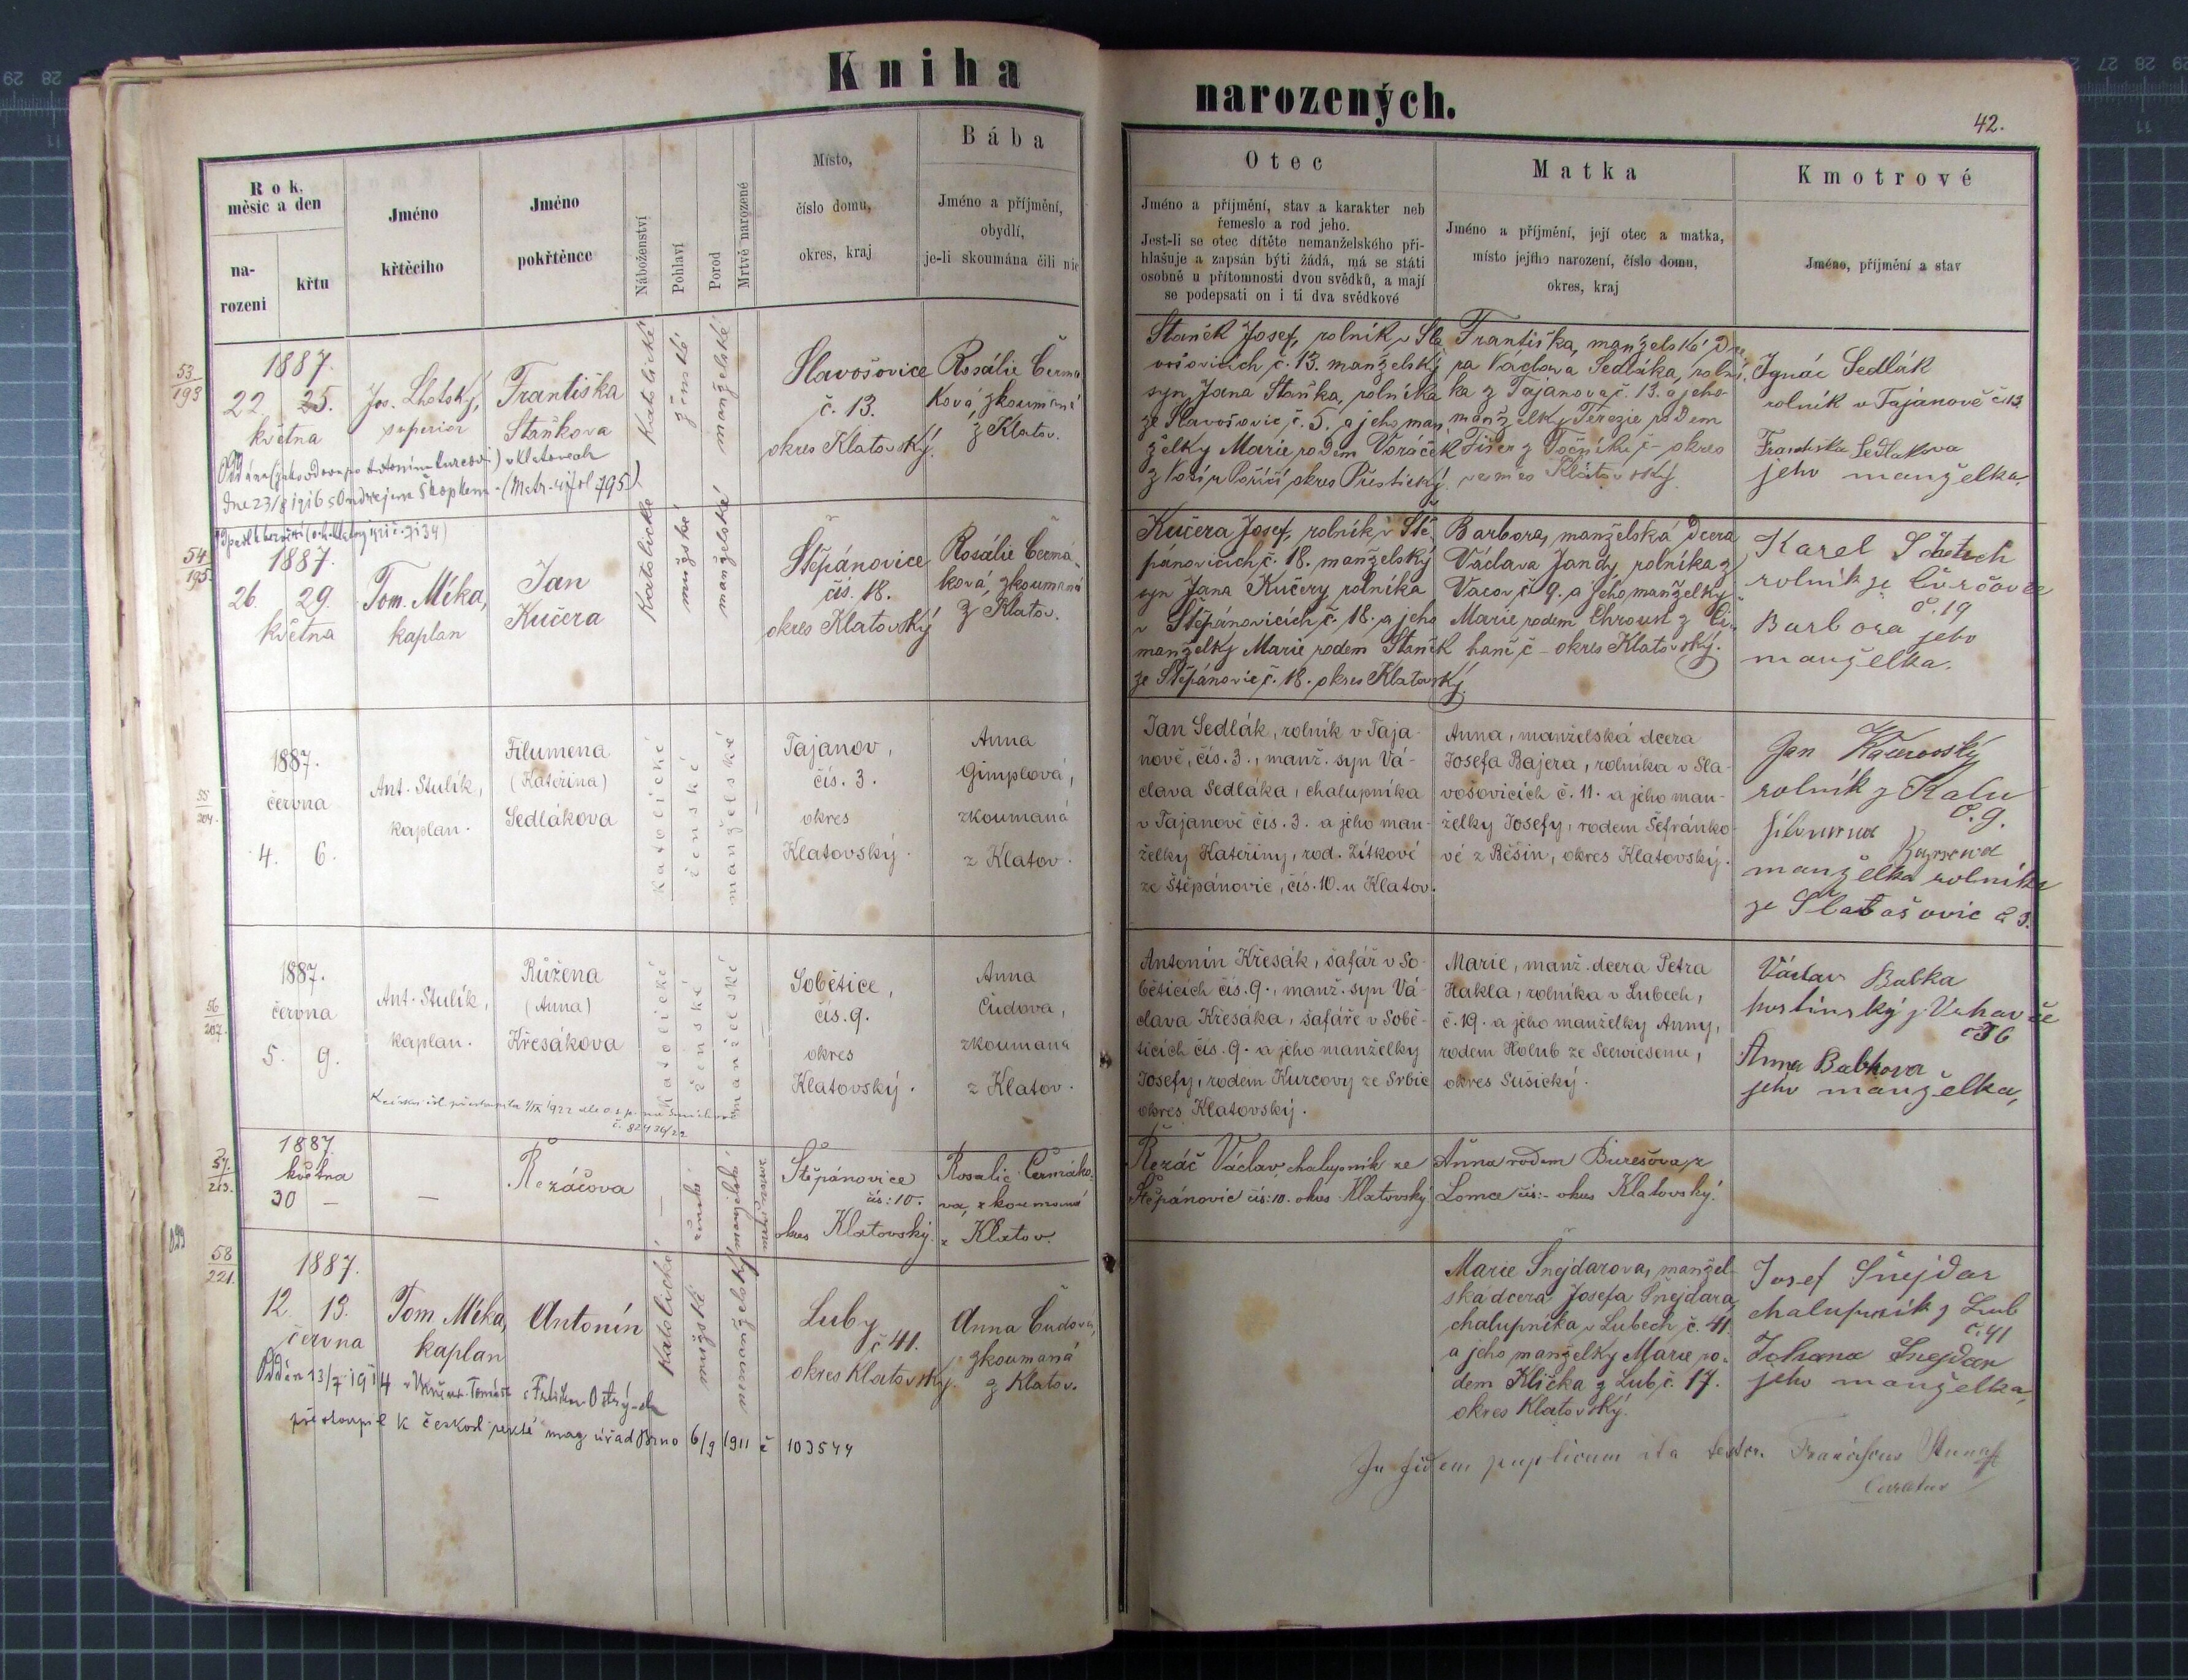 Kniha
narozených.
42.
Rok, měsíc a den
narození
křtu
Jméno křtěcího
Jméno pokřtěnce
Náboženství
Pohlaví
Porod
Mrtvě narozené
Místo,
číslo domu,
okres, kraj
Bába
Jméno a příjmění,
obydlí,
je-li skoumána čili nic
Otec
Jméno a příjmění, stav a karakter neb
řemeslo a rod jeho.
Jest-li se otec dítěte nemanželského při-
hlašuje a zapsán býti žádá, má se státi
osobně u přítomnosti dvou svědků, a mají
se podepsati on i ti dva svědkové
Matka
Jméno a příjmění, její otec a matka,
místo jejího narození, číslo domu,
okres, kraj
Kmotrové
Jméno, příjmění a stav
53
193
1887.
22. 25.
května
Jos. Lhotský,
superior
Františka
Staňkova
Katolické
ženské
manželské
Slavošovice
č. 13.
okres Klatovský.
Rosálie Čermá-
ková, zkoumaná
z Klatov.
Staněk Josef, rolník v Sla-
vošovicích č. 13. manželský
syn Jana Staňka, rolníka
ze Slavošovic, č. 5. a jeho man-
želky Marie rodem Voráček
okres Přestický.
Františka, manželská dce-
ra Václava Sedláka, rolní-
ka z Tajanova č. 13. a jeho
manželky Terezie rodem
Fišer z Točníka č - okres
Klatovský
Ignác Sedlák
rolník v Tajanově č 13
Františka Sedlakova
jeho manželka.
v Klatovech
dne 23/8 1916 s Ondrejem
54
195
1887.
26. 29.
května
Tom. Míka,
kaplan
Jan
Kučera
Katolické
mužské
manželské
Štěpánovice
čís. 18.
okres Klatovský
Rosálie Čermá-
ková, zkoumaná
z Klatov.
Kučera Josef, rolník v Ště-
pánovicích č. 18. manželský
syn Jana Kučery rolníka
v Štěpánovicích č. 18. a jeho
manželky Marie rodem Staněk
ze Štěpánovic č. 18. okres Klatovský.
Barbora, manželská dcera
Václava Jandy rolníka z
Vacov č. 9. a jeho manželky
Marie rodem Chroust z Ci-
haně č - okres Klatovský.
Karel
rolník ze
č. 19
Barbora jeho
manželka.
55
204.
1887.
června
4. 6.
Ant. Stulík,
kaplan.
Filumena
(Kateřina)
Sedlákova
Katolické
ženské
manželské
—
Tajanov,
čís. 3.
okres
Klatovský.
Anna
Gimplová,
zkoumaná
z Klatov.
Jan Sedlák, rolník v Taja-
nově, čís. 3., manž. syn Vá-
clava Sedláka, chalupníka
v Tajanově čís. 3. a jeho man-
želky Kateřiny, rod. Zítkové
ze Štěpánovic, čís. 10. u Klatov.
Anna, manželská dcera
Josefa Bajera, rolníka v Sla-
vošovicích č. 11. a jeho man-
želky Josefy, rodem Šefránko-
vé z Běšin, okres Klatovský.
Jan
rolník z Kalu
č. 9.
manželka rolníka
ze
56
207.
1887.
června
5. 9.
Ant. Stulík,
kaplan.
Růžena
(Anna)
Křesákova
Katolické
ženské
manželské
—
Sobětice,
čís. 9.
okres
Klatovský.
Anna
Čudova,
zkoumaná
z Klatov.
Antonín Křesák, šafář v So-
běticích čís. 9., manž. syn Vá-
clava Křesáka, šafáře v Sobě-
ticích čís. 9. a jeho manželky
Josefy, rodem Kurcovy ze Srbic
okres Klatovský.
Marie, manž. dcera Petra
Hakla, rolníka v Lubech,
č. 19. a jeho manželky Anny,
rodem Holub ze Seewiesenu,
okres Sušický.
Václav Babka
hostinský z
č 36
Anna Babkova
jeho manželka,
57.
213.
1887.
května
30 —
—
Řezáčova
—
ženské
manželské
mrtvě narozené
Štěpánovice
čís: 10.
okres Klatovský.
Rosalie Čermáko-
va, zkoumaná
z Klatov.
Řezáč Václav chalupník ze
Štěpánovic čís: 10. okres Klatovský
Anna rodem Burešova, z
Lomce čís: - okres Klatovský.
58
221.
1887.
12. 13.
června
Tom Míka,
kaplan
Antonín
Katolické
mužské
nemanželský
Luby
č 41.
okres Klatovský.
Anna Čudová,
zkoumaná
z Klatov.
Marie Šnejdarova, manžel-
ská dcera Josefa Šnejdara,
chalupníka v Lubech č. 41.
a jeho manželky Marie ro-
dem Klička z Lub č. 17.
okres Klatovský.
Josef Šnejdar
chalupník z Lub
č. 41
Johana Šnejdar
jeho manželka,
Oddán 13/7 1914
přestoupil k českosl mag úřad Brno 6/9 1911 č 103544
In fidem puplicam ita testor. Franciscus